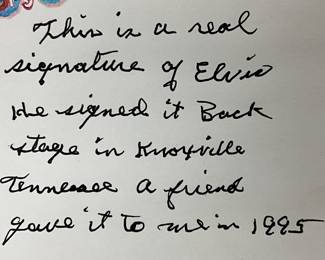 This is a real
signature of Elvis
He signed it Back
stage in Knoxville
Tennessee A friend
gave it to me in 1995